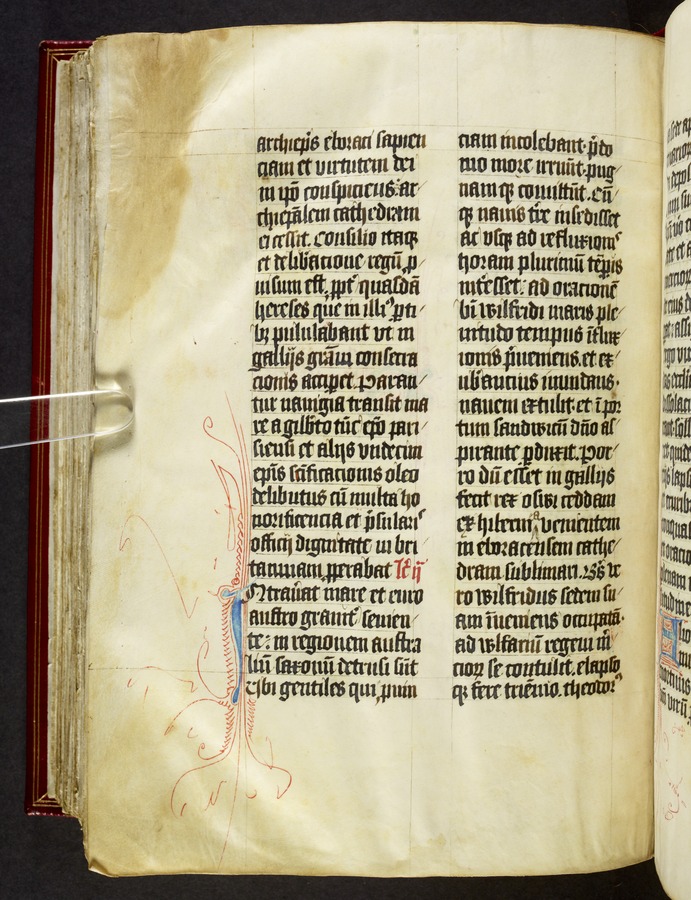 archiep̄s eboraci sapien
ciam et virtutem dei
in ip̄o conspiciens ar
chiep̄alem cathedram
ei cessit. Consilio itaqꝫ
et delib̄acione regū ꝓ
uisum est. ꝓpt̄ quasdā
hereses que in illis ꝑti
bꝫ pululabant vt in
gallijs gr̄am consecra
cionis accip̄et. Paran
tur nauigia transit ma
re a gilb̄to tūc ep̄o pari
siensi et alijs vndecim
ep̄is sc̄ificacionis oleo
delibutus cū multa ho
norificencia et p̄sulari
officij dignitate in bri
tanniam ꝓperabat lc̄ ij
Ntrauāt mare et euro
austro grauit̄ seuien
te: in regionem austra
liū saxonū detrusi sūt
vbi gentiles qui pⁱmi
ciam incolebant p̄do
nio more irruūt pug
nam qꝫ conuittūt. Cū
qꝫ nauis tr̄e insedisset
ac vsqꝫ ad refluxionis
horam plurimū tēpis
int̄esset: ad oracionē
bī wilfridi maris ple
nitudo tempus īflux
ionis p̄ueniens. et ex
ub̄ancius inundans.
nauem extulit. et ī por
tum sandwicū dn̄o as
pirante ꝑduxit. Por
ro dū esset in gallijs
fecit rex oswi ceddam
ex hibernia venientem
in eboracensem cathe
dram sublimari. Sꝫ ve
ro wilfridus sedem su
am īueniens occupatā.
ad wlfariū regem m̄
cioꝝ se contulit. elapso
qꝫ fere triēnio. theodorꝰ